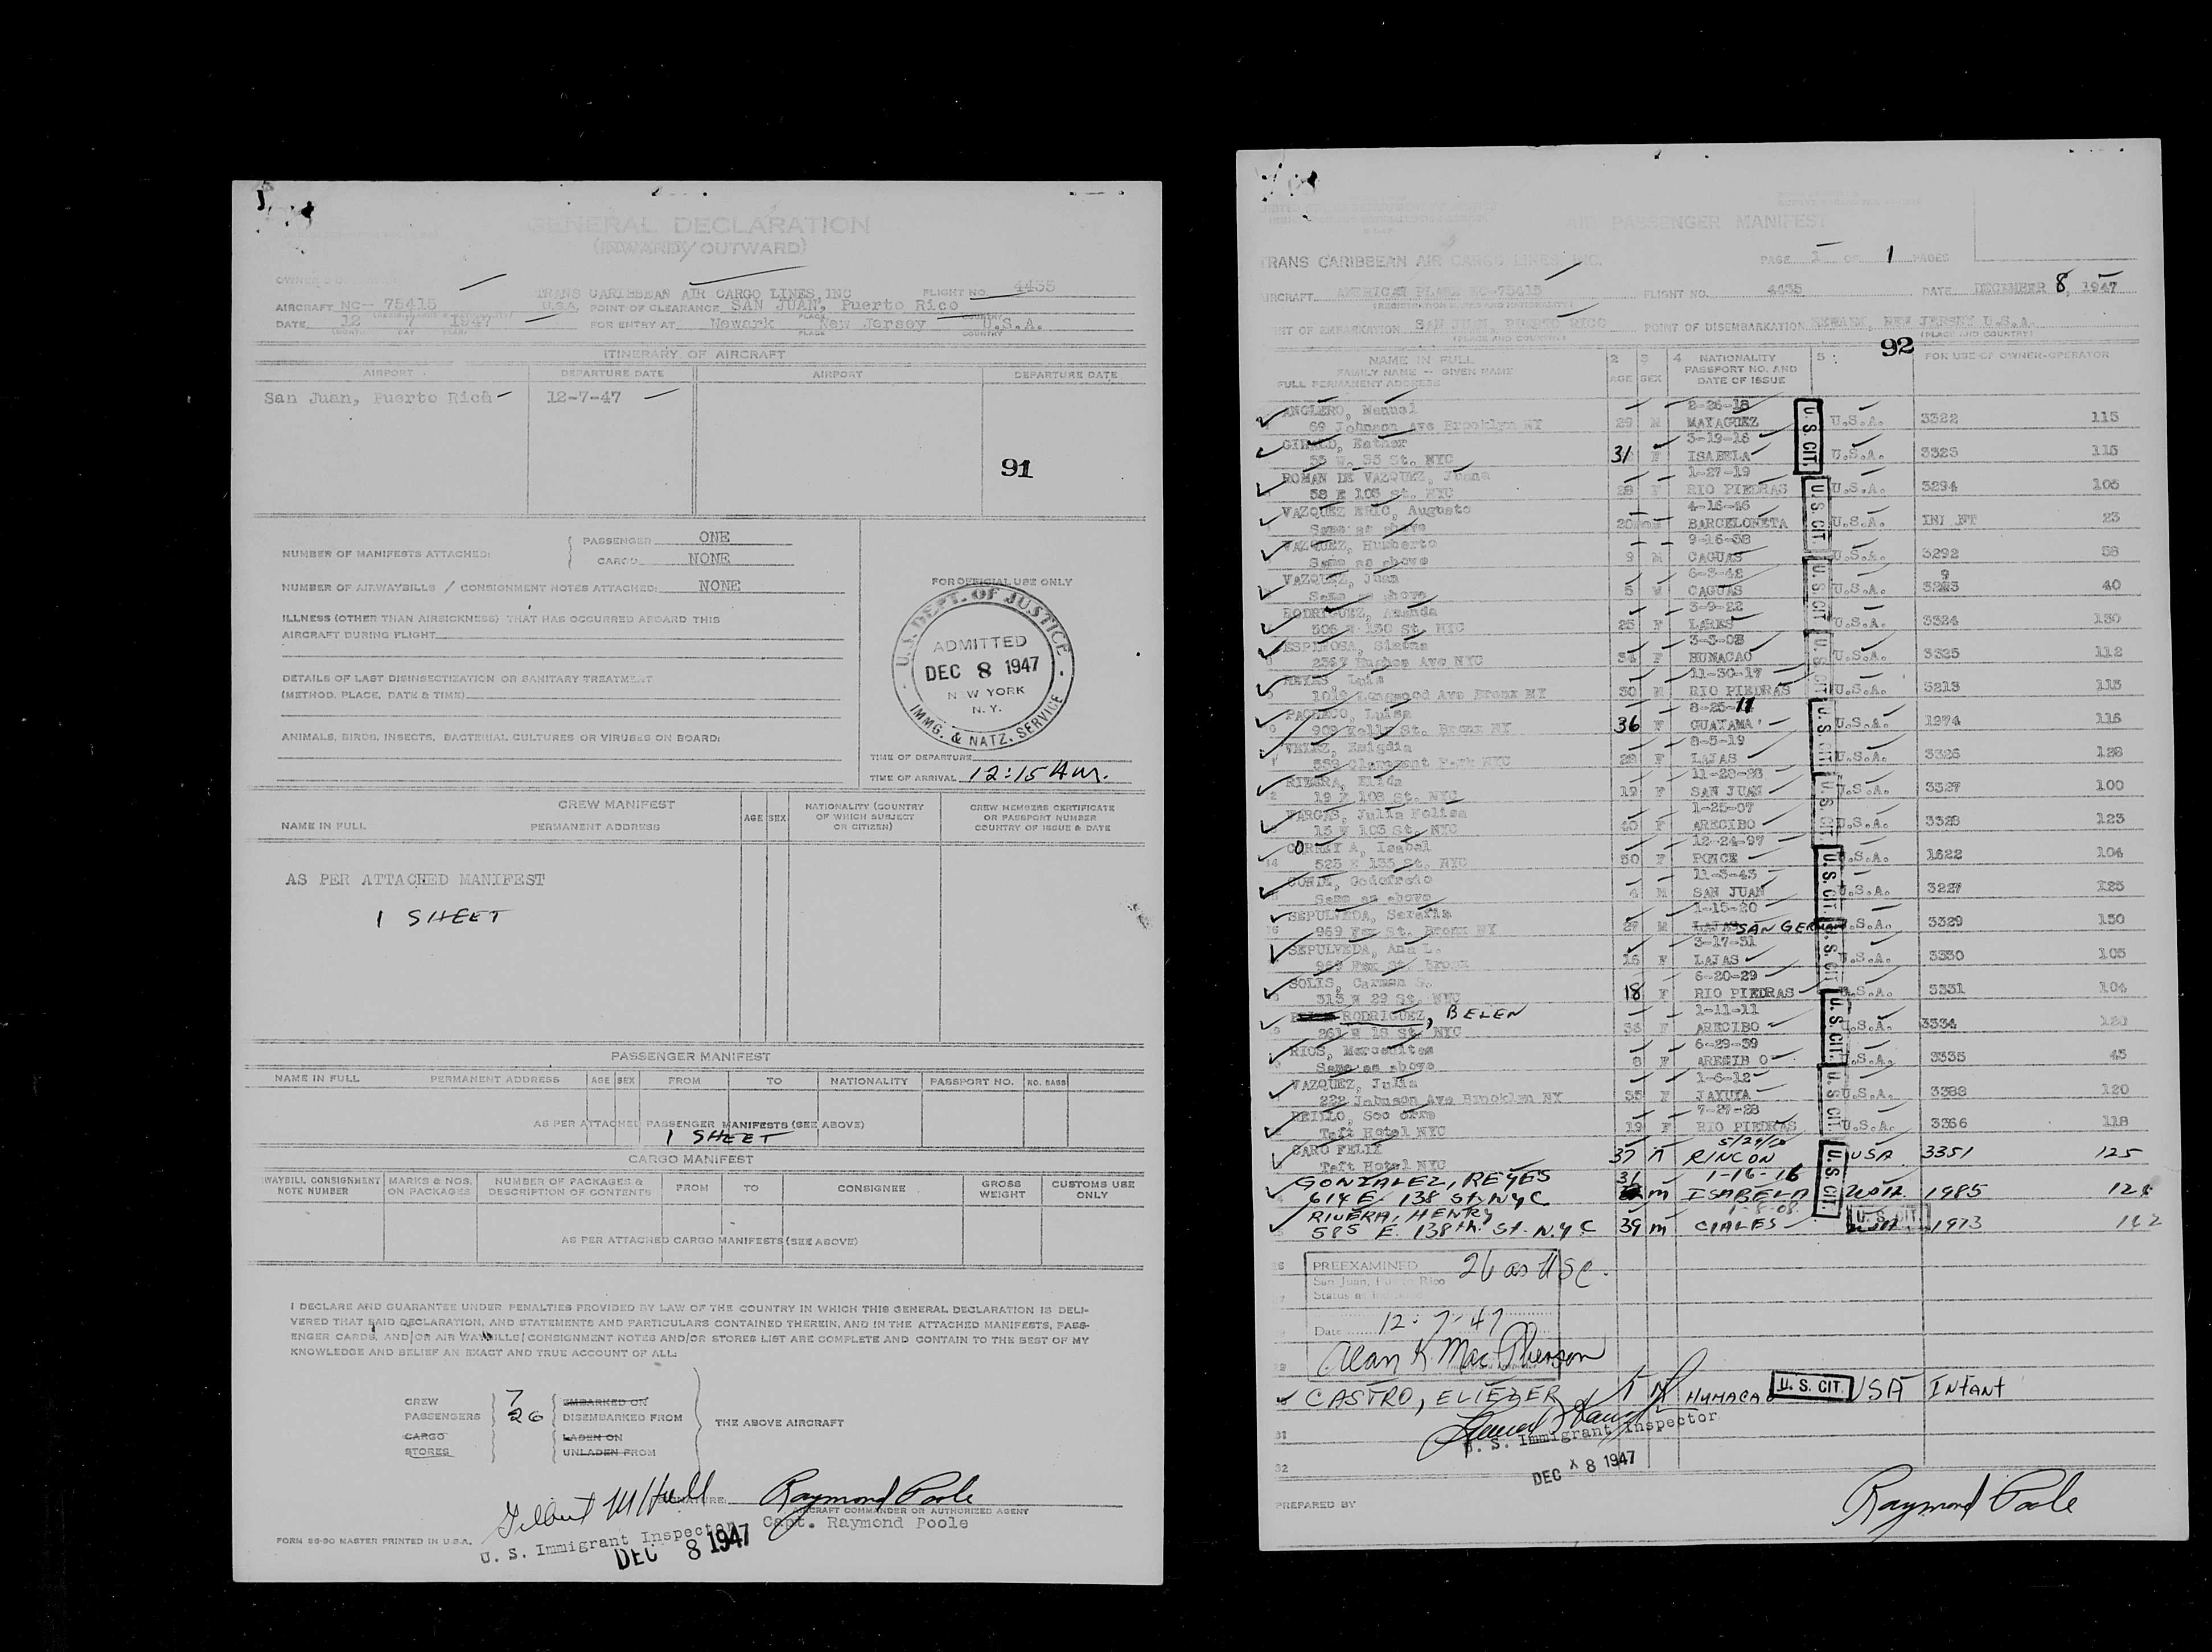 GENERAL DECLARATION
(INWARD/OUTWARD)
TRANS CARIBBEAN AIR CARGO LINES, INC FLIGHT NO. 4435
AIRCRAFT NC- 75415 U.S.A. POINT OF CLEARANCE SAN JUAN, Puerto Rico
DATE 12 7 1947 FOR ENTRY AT Newark New Jersey U.S.A.
ITINERARY OF AIRCRAFT
AIRPORT DEPARTURE DATE AIRPORT DEPARTURE DATE
San Juan, Puerto Rica 12-7-47
91
NUMBER OF MANIFESTS ATTACHED: PASSENGER ONE
CARGO NONE
NUMBER OF AIRWAYBILLS / CONSIGNMENT NOTES ATTACHED: NONE
FOR OFFICIAL USE ONLY
ILLNESS (OTHER THAN AIRSICKNESS) THAT HAS OCCURRED ABOARD THIS
AIRCRAFT DURING FLIGHT
DETAILS OF LAST DISINSECTIZATION OR SANITARY TREATMENT
(METHOD, PLACE, DATE & TIME)
ANIMALS, BIRDS, INSECTS, BACTERIAL CULTURES OR VIRUSES ON BOARD:
U.S. DEPT. OF JUSTICE
ADMITTED
DEC 8 1947
NEW YORK
N.Y.
IMMG. & NATZ. SERVICE
TIME OF DEPARTURE
TIME OF ARRIVAL 12:15 AM.
CREW MANIFEST
NAME IN FULL PERMANENT ADDRESS AGE SEX NATIONALITY (COUNTRY OF WHICH SUBJECT OR CITIZEN) CREW MEMBERS CERTIFICATE OR PASSPORT NUMBER COUNTRY OF ISSUE & DATE
AS PER ATTACHED MANIFEST
1 SHEET
PASSENGER MANIFEST
NAME IN FULL PERMANENT ADDRESS AGE SEX FROM TO NATIONALITY PASSPORT NO. NO. BAGS
AS PER ATTACHED PASSENGER MANIFESTS (SEE ABOVE)
1 SHEET
CARGO MANIFEST
WAYBILL CONSIGNMENT NOTE NUMBER MARKS & NOS. ON PACKAGES NUMBER OF PACKAGES & DESCRIPTION OF CONTENTS FROM TO CONSIGNEE GROSS WEIGHT CUSTOMS USE ONLY
AS PER ATTACHED CARGO MANIFESTS (SEE ABOVE)
I DECLARE AND GUARANTEE UNDER PENALTIES PROVIDED BY LAW OF THE COUNTRY IN WHICH THIS GENERAL DECLARATION IS DELI-
VERED THAT SAID DECLARATION, AND STATEMENTS AND PARTICULARS CONTAINED THEREIN, AND IN THE ATTACHED MANIFESTS, PASS-
ENGER CARDS, AND/OR AIR WAYBILLS/CONSIGNMENT NOTES AND/OR STORES LIST ARE COMPLETE AND CONTAIN TO THE BEST OF MY
KNOWLEDGE AND BELIEF AN EXACT AND TRUE ACCOUNT OF ALL:
CREW 7 EMBARKED ON
PASSENGERS 26 DISEMBARKED FROM THE ABOVE AIRCRAFT
CARGO LADEN ON
STORES UNLADEN FROM
SIGNATURE: Raymond Poole
AIRCRAFT COMMANDER OR AUTHORIZED AGENT
U. S. Immigrant Inspector Capt. Raymond Poole
DEC 8 1947
FORM 86-90 MASTER PRINTED IN U.S.A.
AIR PASSENGER MANIFEST
TRANS CARIBBEAN AIR CARGO LINES, INC. PAGE 1 OF 1 PAGES
AIRCRAFT AMERICAN PLANE NC-75415 FLIGHT NO. 4435 DATE DECEMBER 8, 1947
POINT OF EMBARKATION SAN JUAN, PUERTO RICO POINT OF DISEMBARKATION NEWARK, NEW JERSEY U.S.A.
(PLACE AND COUNTRY) (PLACE AND COUNTRY)
92
NAME IN FULL 2 3 4 NATIONALITY 5 FOR USE OF OWNER-OPERATOR
FAMILY NAME -- GIVEN NAME AGE SEX PASSPORT NO. AND
FULL PERMANENT ADDRESS DATE OF ISSUE
ANGLERO, Manuel 2-26-18
69 Johnson Ave Brooklyn NY 29 M MAYAGUEZ U.S.A. 3322 115
GIRALD, Esther 3-19-16
55 W. 53 St. NYC 31 F ISABELA U.S.A. 3323 115
ROMAN DE VAZQUEZ, Juana 1-27-19
58 E 105 St. NYC 28 F RIO PIEDRAS U.S.A. 3294 105
VAZQUEZ ERIC, Augusto 4-16-46
Same as above 20 BARCELONETA U.S.A. 23
VAZQUEZ, Humberto 9-16-38
Same as above 9 M CAGUAS U.S.A. 3292 58
VAZQUEZ, Juan 6-3-42
Same as above 5 M CAGUAS U.S.A. 40
RODRIGUEZ, Amanda 3-9-22
506 W 130 St. NYC 25 F LARES U.S.A. 3324 130
ESPINOSA, Simona
2367 Hughes Ave NYC F HUMACAO U.S.A. 3325 112
REYES Luis 11-30-17
Longwood Ave Bronx NY 30 M RIO PIEDRAS U.S.A. 3213 115
PACHECO, Luisa 8-25-11
909 Kelly St. Bronx NY 36 F GUAYAMA U.S.A. 1974 116
VELEZ, Emigdia 8-5-19
Claremont Park NYC 28 F LAJAS U.S.A. 3326 128
RIVERA, Elida
19 E 108 St. NYC 19 F SAN JUAN U.S.A. 3327 100
VARGAS, Julia Polisa 1-25-07
15 W 103 St. NYC 40 F ARECIBO U.S.A. 3328 123
A, Isabel 12-24-97
523 E 135 St. NYC 50 F PONCE U.S.A. 1622 104
CONDE, Godofredo
Same as above 6 M SAN JUAN U.S.A. 3227 125
SEPULVEDA, Serafin 1-15-20
969 Fox St. Bronx NY 27 M LAJAS SAN GERMAN U.S.A. 3329 150
SEPULVEDA, Ana L. 3-17-31
969 Fox St. Bronx 16 F LAJAS U.S.A. 3330 105
SOLIS, Carmen S. 6-20-29
313 W 29 St. NYC 18 F RIO PIEDRAS U.S.A. 3331 104
RODRIGUEZ, BELEN 1-11-11
261 W 18 St. NYC 36 F ARECIBO U.S.A. 3334
RIOS, Mercedites 6-29-39
Same as above 8 F ARECIB O U.S.A. 3335 45
VAZQUEZ, Julia 1-6-12
222 Johnson Ave Brooklyn NY 35 F JAYUYA U.S.A. 3388 120
7-27-28
Taft Hotel NYC 19 F RIO PIEDRAS U.S.A. 3366 118
CARO FELIX
Taft Hotel NYC 37 M RINCON USA 3351 125
GONZALEZ, REYES 31 1-16-16
614 E. 138 St. NYC m ISABELA USA 1985
RIVERA, HENRY 1-8-08
585 E. 138th. St. N.Y C 39 m CIALES USA 1973
U.S. CIT.
PREEXAMINED 26 as USC.
San Juan, Puerto Rico
Status as
Date 12-7-47
Alan K. MacPherson
CASTRO, ELIEZER M HUMACAO U. S. CIT. USA INFANT
U. S. Immigrant Inspector
DEC 8 1947
PREPARED BY Raymond Poole